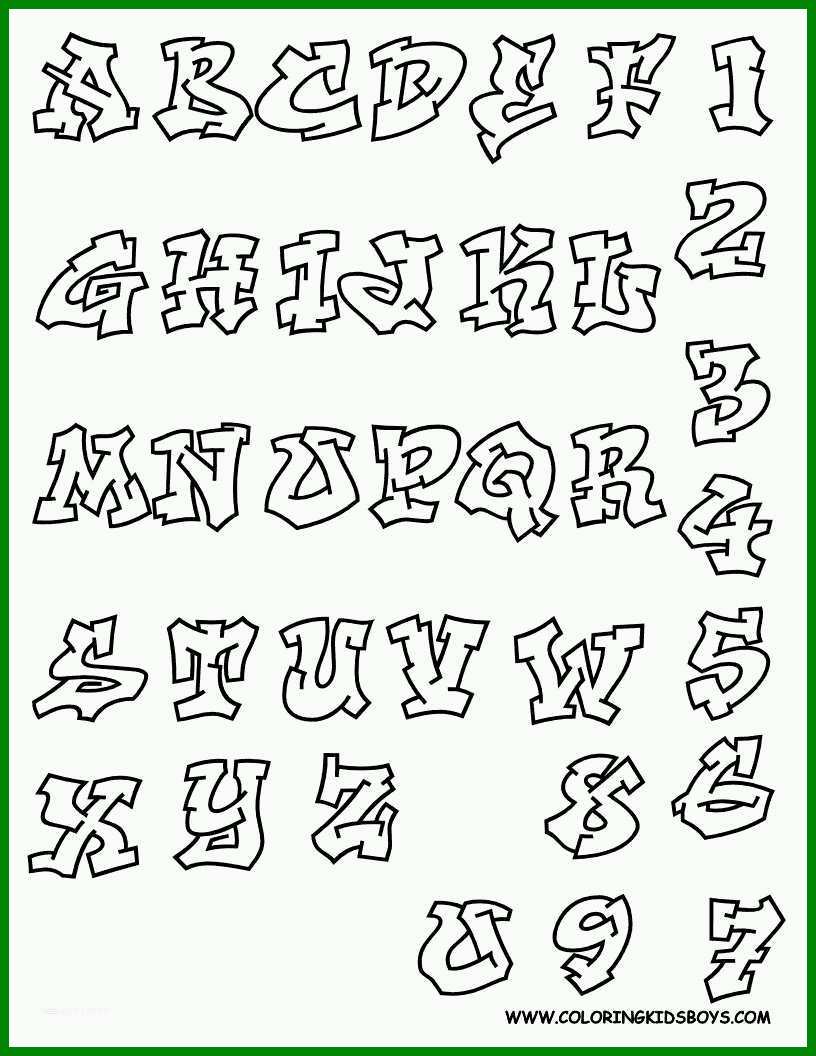 A B C D E F 1
G H I J K L 2
3
M N O P Q R 4
S T U V W 5
X Y Z 8 6
0 9 7
WWW.COLORINGKIDSBOYS.COM